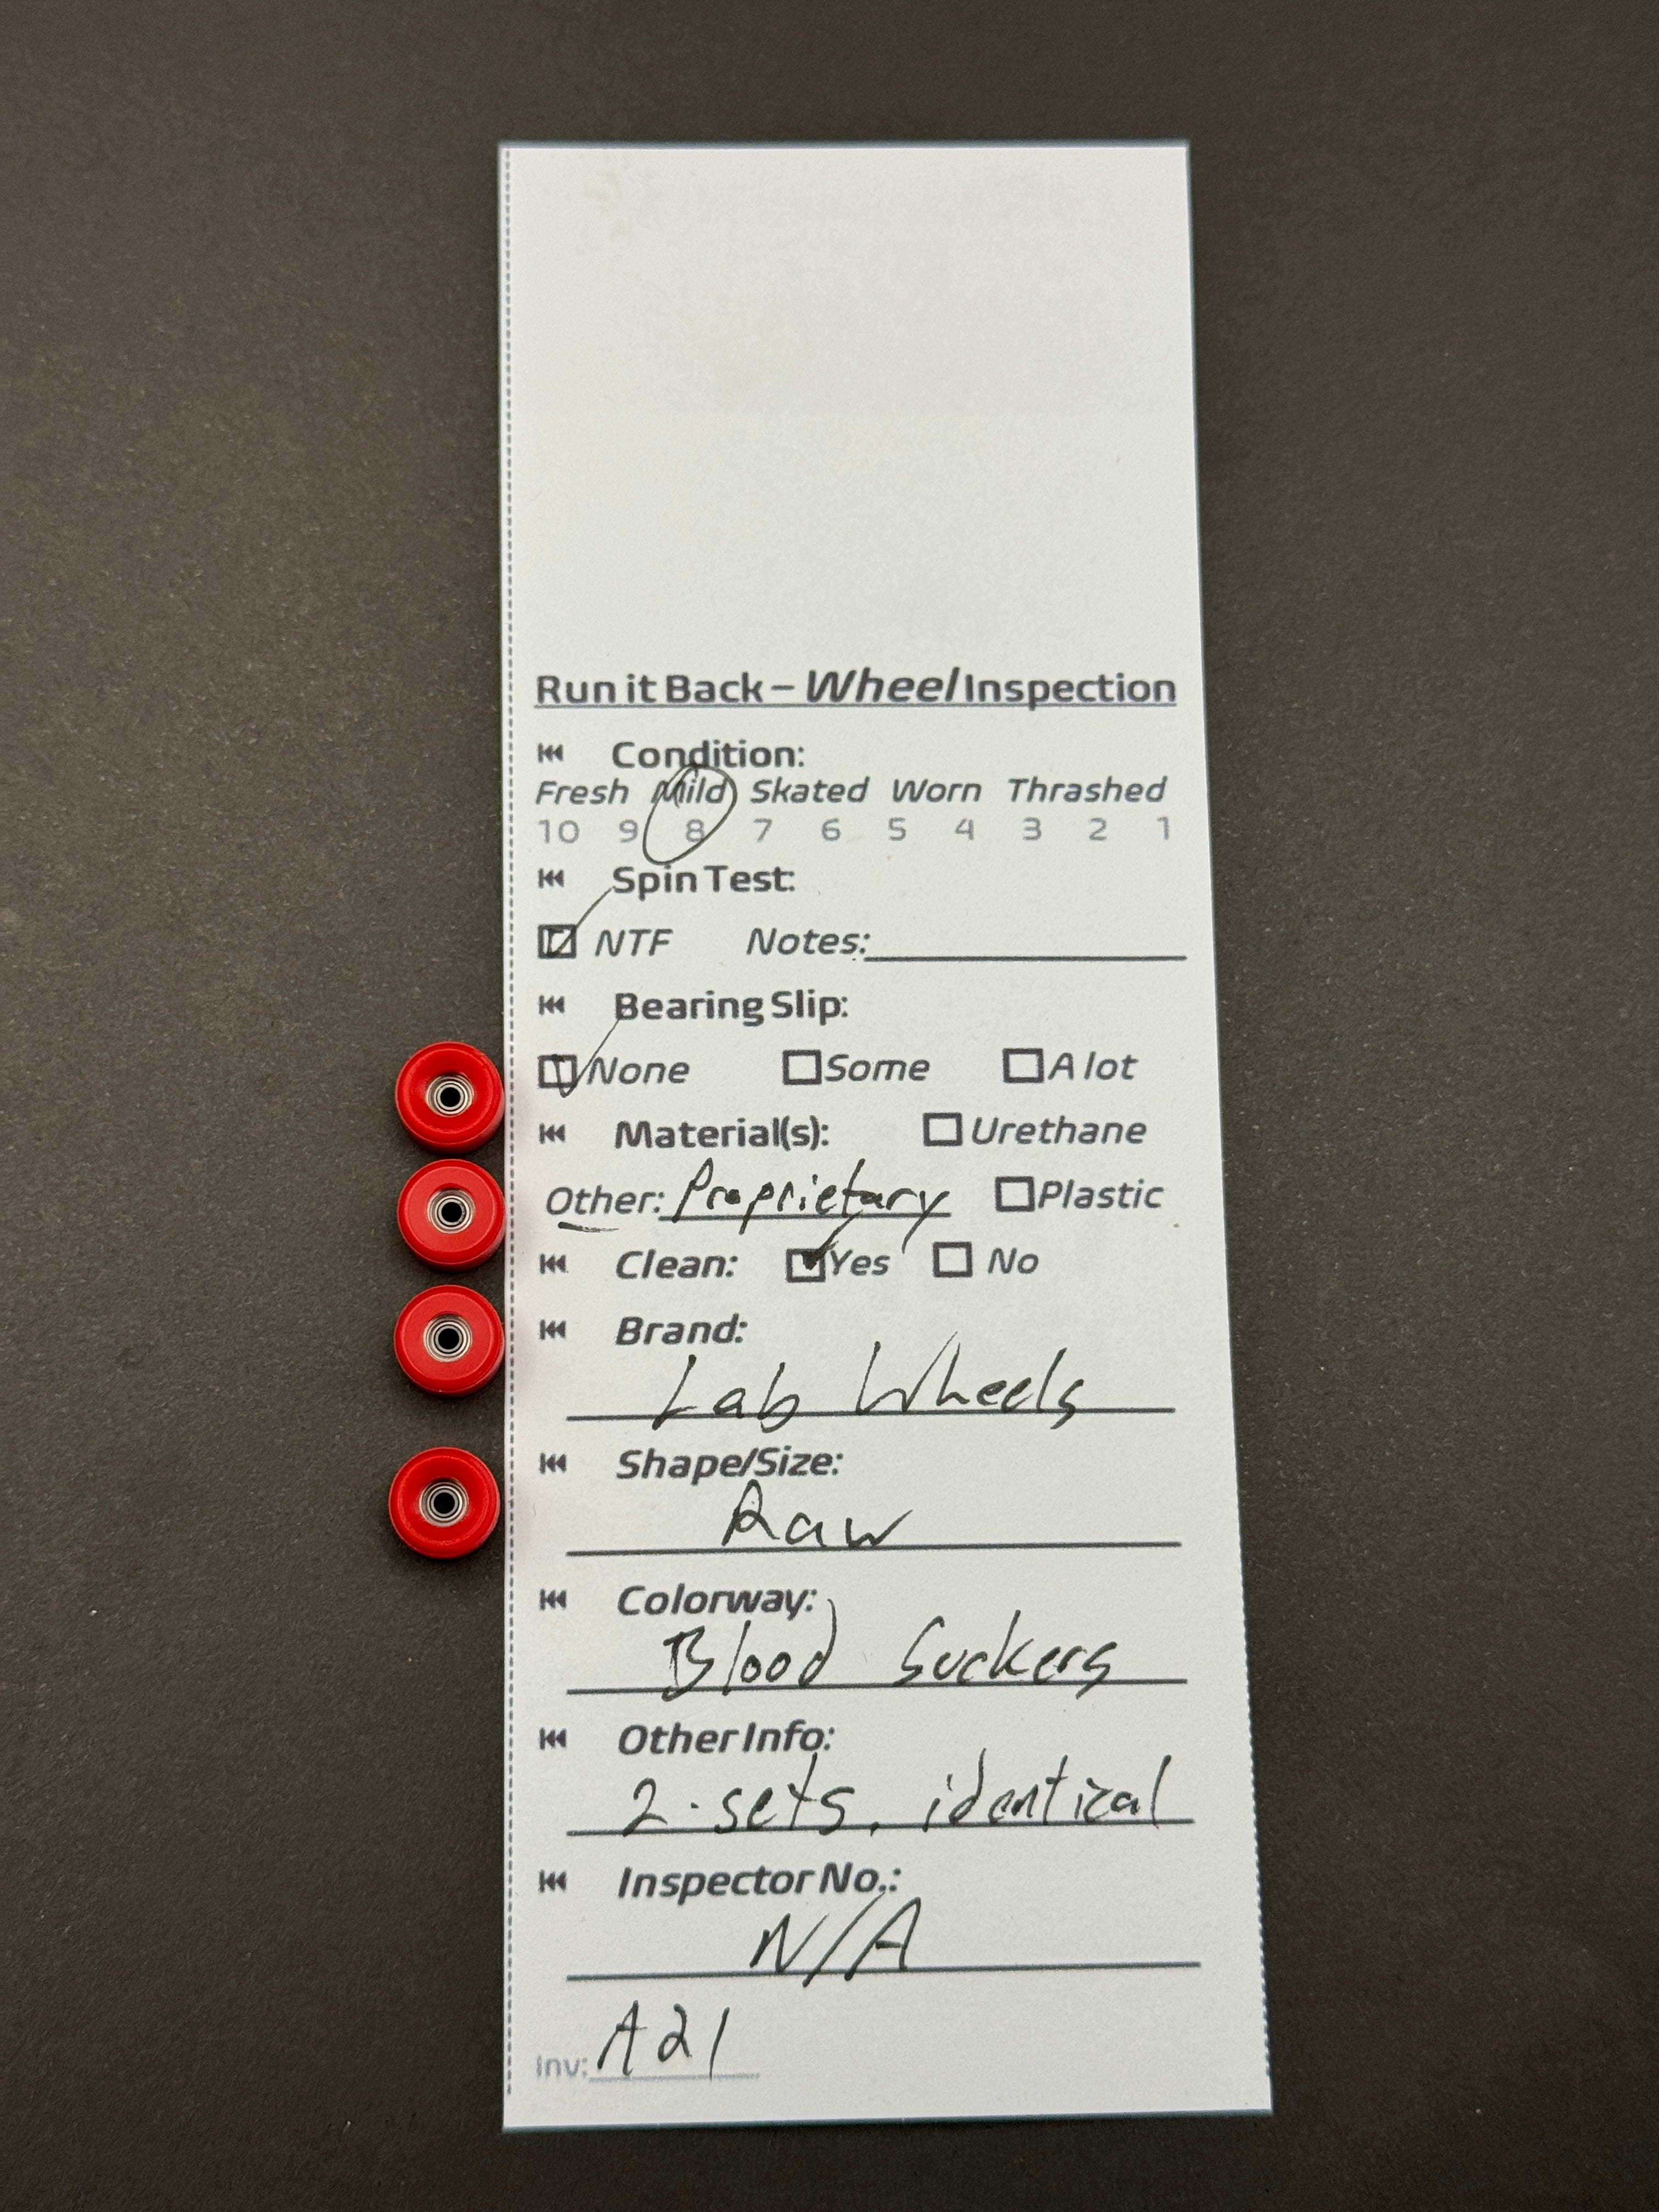 Run it Back – Wheel Inspection
Condition:
Fresh Mild Skated Worn Thrashed
10 9 8 7 6 5 4 3 2 1
Spin Test:
NTF Notes:
Bearing Slip:
None Some A lot
Material(s): Urethane
Other: Proprietary Plastic
Clean: Yes No
Brand:
Lab Wheels
Shape/Size:
Raw
Colorway:
Blood Suckers
Other Info:
2 sets, identical
Inspector No.:
N/A
Inv: A21